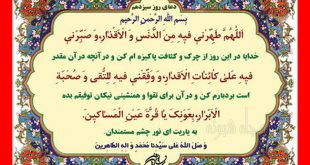 دعای روز سیزدهم
بِسْمِ اللَّهِ الرَّحْمنِ الرَّحیمِ
اللهُمَّ طَهِّرْني فيهِ مِنَ الدَّنَسِ وَ الْاَقْذارِ، وَ صَبِّرْني
خدایا در این روز از چرک و کثافت پاکیزه ام کن و در آن بر آنچه مقدر
فيهِ عَلىٰ كائِناتِ الْاَقْدارِ، وَ وَفِّقْني فيهِ لِلتُّقىٰ وَ صُحْبَةِ
است بردباردم کن و در آن برای تقوا و همنشینی نیکان توفیقم بده
الْاَبْرارِ، بِعَوْنِكَ يا قُرَّةَ عَيْنِ الْمَساكينِ.
به یاریت ای نور چشم مستمندان.
وَ صَلَّ اللهُ عَلیٰ سَیِّدِنا مُحَمَّدٍ وَ آلِهِ الطّاهِرینَ